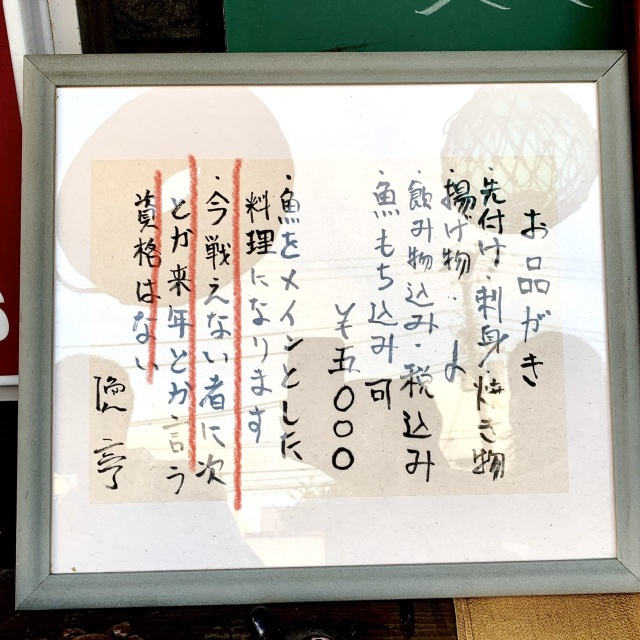 お品がき
・先付け・刺身・焼き物
・揚げ物・・よ
・飲み物込み・税込み
・魚もち込み可
¥五〇〇〇
・魚をメインとした
料理になります
・今戦えない者に次
とか来年とか言う
資格はない
隠亭